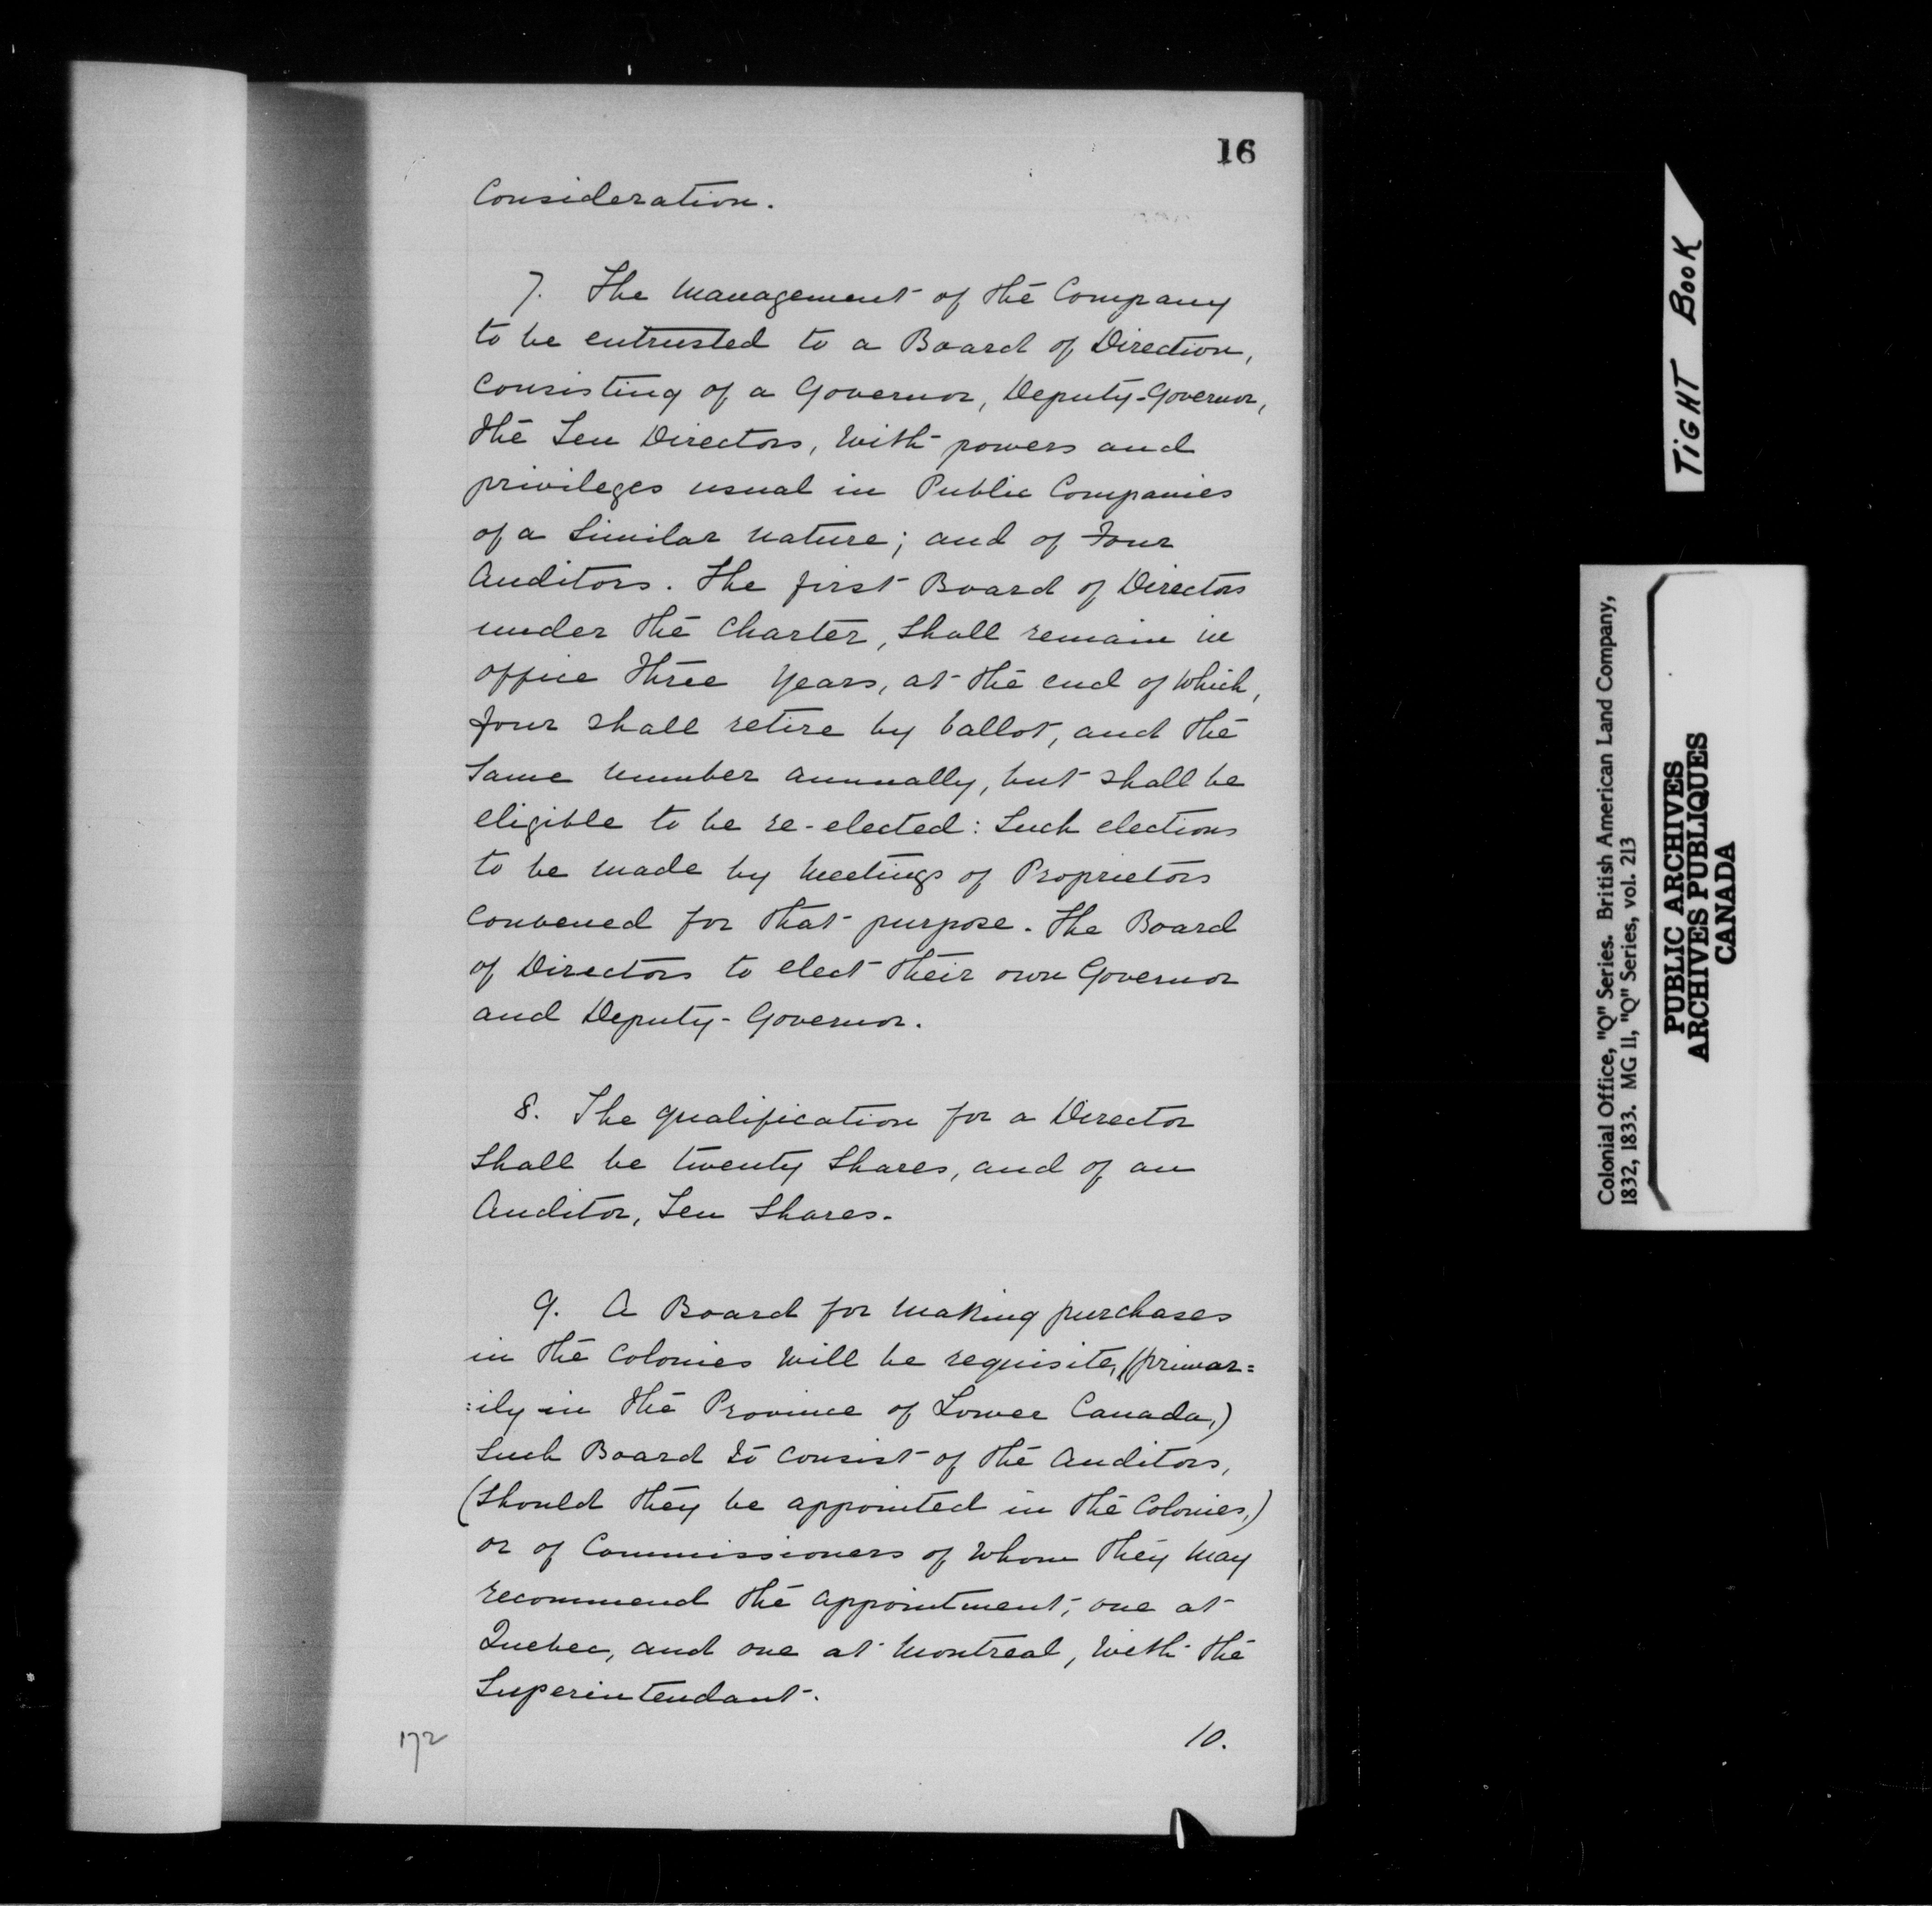 16
Consideration.
7. The Management of the Company
to be entrusted to a Board of Direction,
Consisting of a Governor, Deputy-Governor,
the Ten Directors, With powers and
privileges usual in Public Companies
of a Similar Nature; and of Four
Auditors. The first Board of Directors
under the Charter, Shall remain in
office three years, at the end of which,
four shall retire by ballot, and the
Same number annually, but shall be
eligible to be re-elected: Such elections
to be made by Meetings of Proprietors
Convened for that purpose. The Board
of Directors to elect their own Governor
and Deputy-Governor.
8. The qualification for a Director
Shall be twenty Shares, and of an
Auditor, Ten Shares.
9. A Board for Making purchases
in the Colonies Will be requisite, (primar=
:ily in the Province of Lower Canada,)
Such Board to Consist of the Auditors,
(Should they be appointed in the Colonies,)
or of Commissioners of Whom they May
recommend the appointment; one at
Quebec, and one at Montreal, With the
Superintendant.
172
10.
TIGHT BOOK
Colonial Office, "Q" Series. British American Land Company,
1832, 1833. MG 11, "Q" Series, vol. 213
PUBLIC ARCHIVES
ARCHIVES PUBLIQUES
CANADA